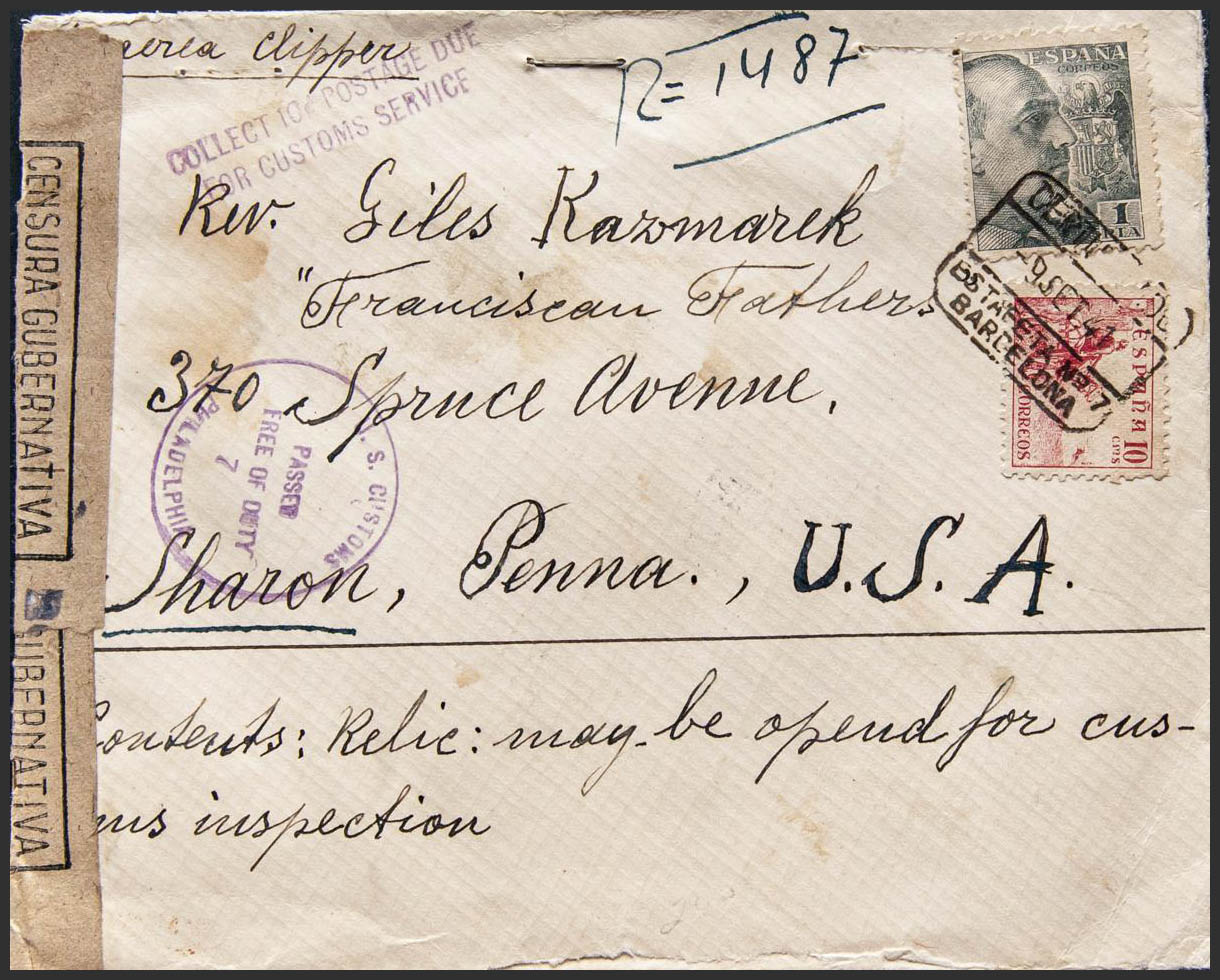 aerea clipper
COLLECT 10¢ POSTAGE DUE
FOR CUSTOMS SERVICE
R= 1487
ESPAÑA
CORREOS
1
PTA
Rev. Giles Kazmarek
"Franciscan Fathers
370 Spruce Avenue,
Sharon, Penna., U.S.A.
Contents: Relic: may be opend for cus-
ms inspection
CENSURA GUBERNATIVA
GUBERNATIVA
U.S. CUSTOMS
PASSED
FREE OF DUTY
7
PHILADELPHIA
9 SET 41
ESTAFETA Nº 7
BARCELONA
ESPAÑA
CORREOS
10
CTS